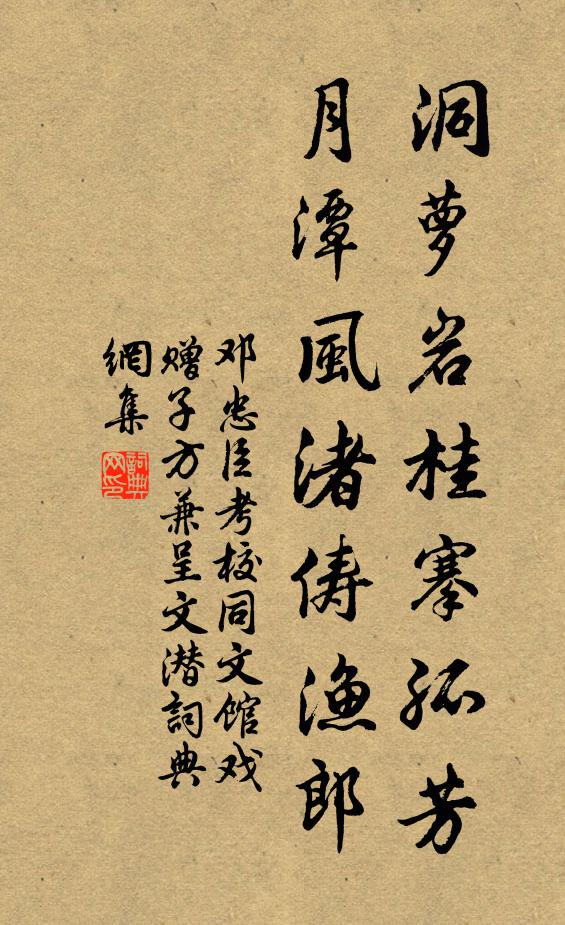 洞萝岩桂搴孤芳
月潭風渚俦渔郎
邓忠臣考校同文馆戏
赠子方兼呈文潜詞典
網集
詞典網印